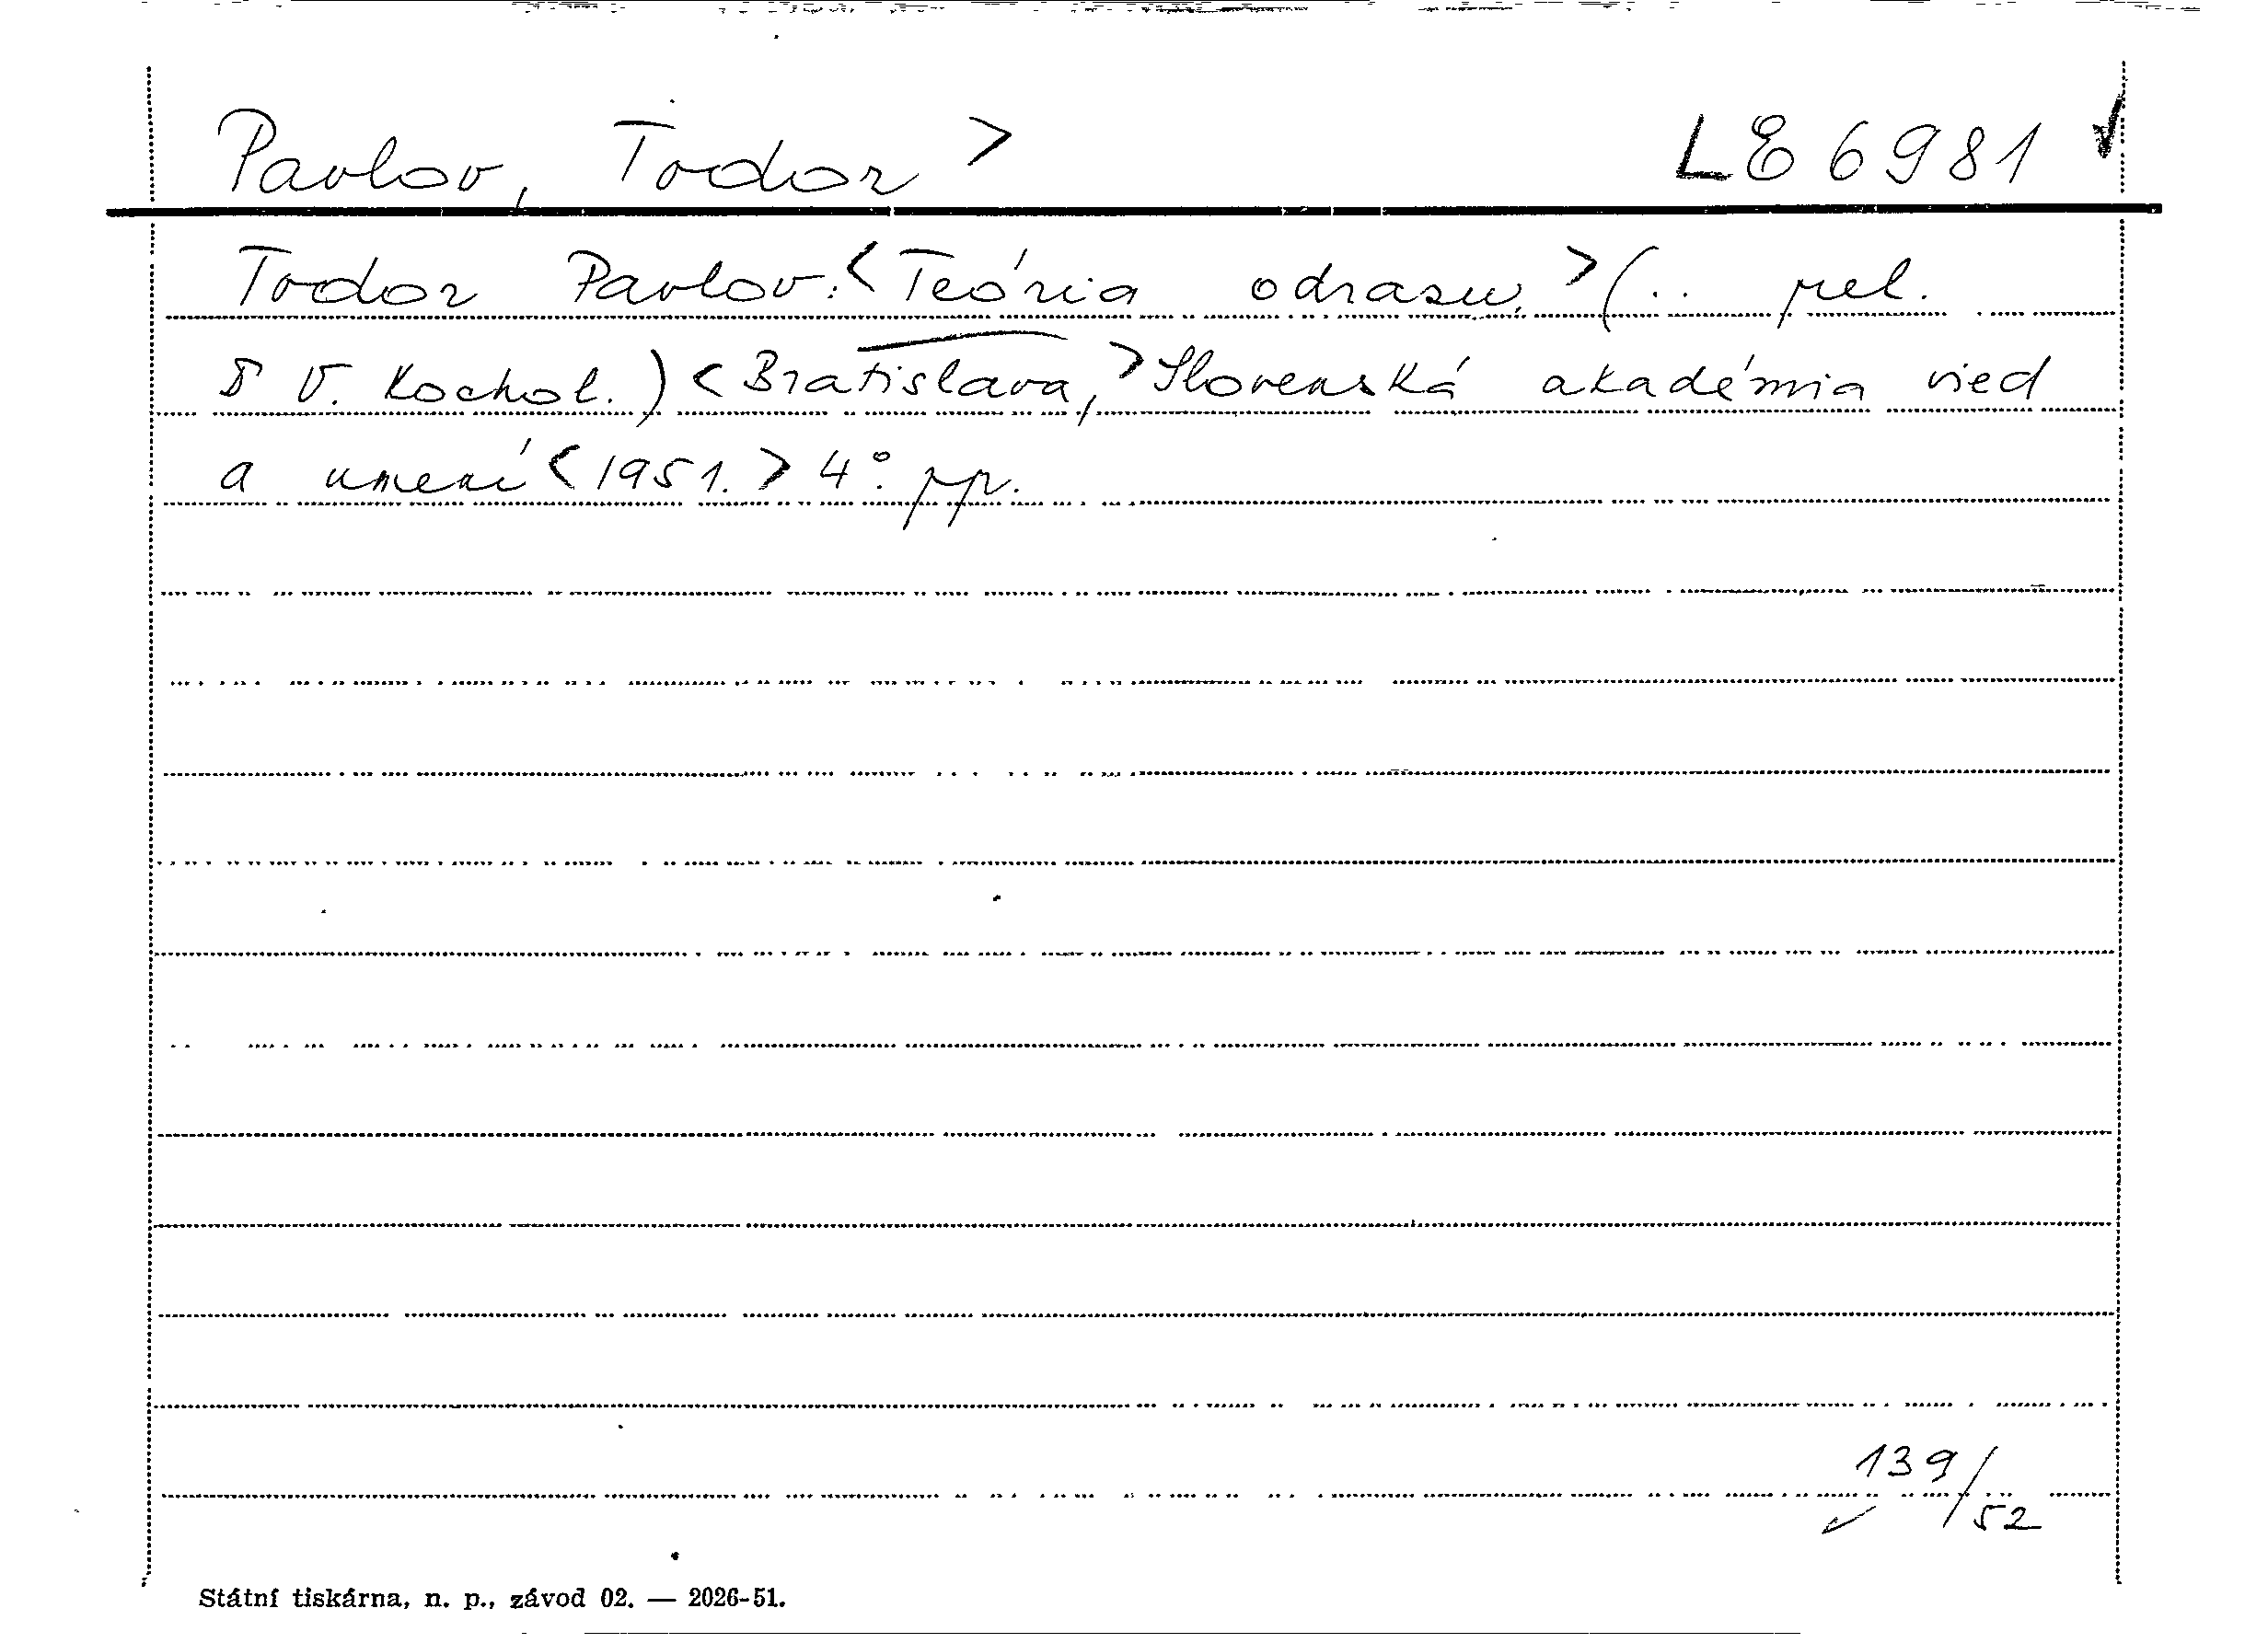 Pavlov, Todor > LE 6981 ✓
Todor Pavlov: <Teória odrasu.> (.. prel.
V. Kochol.) <Bratislava,> Slovenská akadémia vied
a umení <1951.> 4° pp.
139/52
✓
Státní tiskárna, n. p., závod 02. — 2026-51.